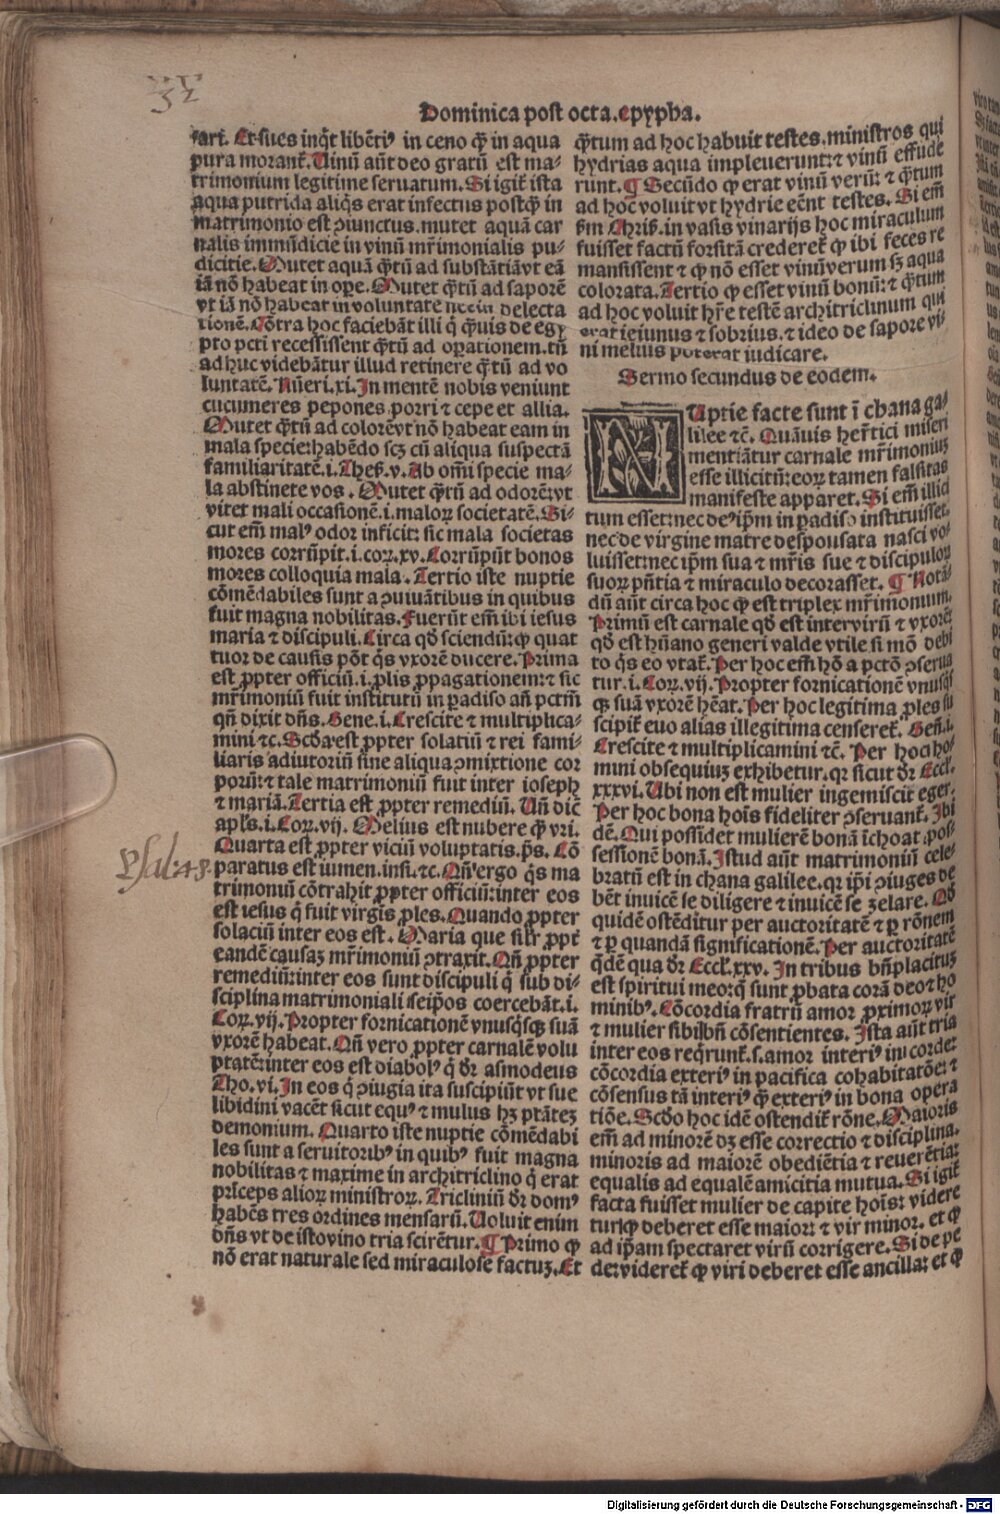 32
Dominica post octa. epypha.
sari. Et sues inq̄t libēti⁹ in ceno q̄ꝫ in aqua
pura morant̄. Uinū aūt deo gratū est ma-
trimonium legitime seruatum. Si igit̄ ista
aqua putrida aliq̄s erat infectus postq̄ꝫ in
matrimonio est ꝯiunctus. mutet aquā car
nalis immūdicie in vinū mr̄imonialis pu-
dicitie. Mutet aquā q̄tū ad substātiā vt eā
iā nō habeat in oꝑe. Mutet q̄tū ad saporē
vt iā nō habeat in voluntate necin delecta
tionē. Cōtra hoc faciebāt illi q̄ q̄uis de egy
pto pcti recessissent q̄tū ad oꝑationem. tn̄
ad huc videbātur illud retinere q̄tū ad vo
luntatē. Nūeri. xi. In mentē nobis veniunt
cucumeres pepones porri ⁊ cepe et allia.
Mutet q̄tū ad colorē vt nō habeat eam in
mala specie: habēdo scꝫ cū aliqua suspectā
familiaritatē. i. Theß. v. Ab om̄i specie ma-
la abstinete vos. Mutet q̄tū ad odorē: vt
vitet mali occasionē. i. maloꝝ societatē. Si-
cut em̄ mal⁹ odor inficit: sic mala societas
mores corrūpit. i. coꝝ. xv. Corrūpūt bonos
mores colloquia mala. Tertio iste nuptie
cōmēdabiles sunt a ꝯuiuātibus in quibus
fuit magna nobilitas. Fuerūt em̄ ibi iesus
maria ⁊ discipuli. Circa qđ sciendū: ꝙ quat
tuor de causis pōt q̄s vxorē ducere. Prima
est ꝓpter officiū. i. ꝓlis ꝓpagationem: ⁊ sic
mr̄imoniū fuit institutū in ꝑadiso añ pctm̄
qñ dixit dñs. Gene. i. Crescite ⁊ multiplica-
mini ⁊c. Scđa est ꝓpter solatiū ⁊ rei fami-
liaris adiutoriū sine aliqua ꝯmixtione cor
porū: ⁊ tale matrimoniū fuit inter ioseph
⁊ mariā. Tertia est ꝓpter remediū. Uñ dic̄
apl̄s. i. Coꝝ. vij. Melius est nubere q̄ꝫ vri.
Quarta est ꝓpter viciū voluptatis. ps̄. Cō
Psal: 48.
paratus est iumen. insi. ⁊c. Qñ ergo q̄s ma
trimoniū cōtrahit ꝓpter officiū: inter eos
est iesus q̄ fuit virgis ꝓles. Quando ꝓpter
solaciū inter eos est. Maria que sil̄r ꝓpt̄
eandē causaꝫ mr̄imoniū ꝯtraxit. Qñ ꝓpter
remediū: inter eos sunt discipuli q̄ sub di-
sciplina matrimoniali seip̄os coercebāt. i.
Coꝝ. vij. Propter fornicationē vnusq̄sqꝫ suā
vxorē habeat. Qñ vero ꝓpter carnalē volu
ptatē: inter eos est diabol⁹ q̄ dr̄ asmodeus
Tho. vi. In eos q̄ ꝯiugia ita suscipiūt vt sue
libidini vacēt sicut equ⁹ ⁊ mulus hꝫ p̄tāteꝫ
demonium. Quarto iste nuptie cōmēdabi
les sunt a seruitorib⁹ in quib⁹ fuit magna
nobilitas ⁊ maxime in architriclino q̄ erat
prīceps alioꝝ ministroꝝ. Tricliniū dr̄ dom⁹
habēs tres ordines mensarū. Uoluit enim
dñs vt de isto vino tria scirētur. ¶ Primo ꝙ
nō erat naturale sed miraculose factuꝫ. Et
q̄tum ad hoc habuit testes. ministros qui
hydrias aqua impleuerunt: ⁊ vinū effude
runt. ¶ Secūdo ꝙ erat vinū verū: ⁊ q̄tum
ad hoc voluit vt hydrie eēnt testes. Si em̄
ßm Chriß. in vasis vinarijs hoc miraculum
fuisset factū forsitā crederet̄ ꝙ ibi feces re
mansissent ⁊ ꝙ nō esset vinū verum sꝫ aqua
colorata. Tertio ꝙ esset vinū bonū: ⁊ q̄tum
ad hoc voluit hr̄e testē architriclinum qui
erat ieiunus ⁊ sobrius. ⁊ ideo de sapore vi-
ni melius poterat iudicare.
Sermo secundus de eodem.
NUptie facte sunt ī chana ga-
lilee ⁊c̄. Quāuis her̄tici miseri
mentiātur carnale mr̄imoniuꝫ
esse illicitū: eoꝝ tamen falsitas
manifeste apparet. Si em̄ illici
tum esset: nec de⁹ ip̄m in ꝑadiso instituisset.
nec de virgine matre despousata nasci vo-
luisset: nec ip̄m sua ⁊ mr̄is sue ⁊ discipuloꝝ
suoꝝ pn̄tia ⁊ miraculo decorasset. ¶ Notā-
dū aūt circa hoc ꝙ est triplex mr̄imonium.
Primū est carnale qđ est inter virū ⁊ vxorē:
qđ est hūano generi valde vtile si mō debi
to q̄s eo vtat̄. Per hoc em̄ hō a pctō ꝯserua
tur. i. Coꝝ. vij. Propter fornicationē vnusq̄s
qꝫ suā vxorē hēat. Per hoc legitima ꝓles su
scipit̄ cuo alias illegitima censeret̄. Geñ. i.
Crescite ⁊ multiplicamini ⁊c̄. Per hoc ho-
mini obsequiuꝫ exhibetur. qꝛ sicut dr̄ Eccl̄.
xxxvi. Ubi non est mulier ingemiscit eger.
Per hoc bona hoīs fideliter ꝯseruant̄. Ibi
dē. Qui possidet mulierē bonā īchoat pos-
sessionē bonā. Istud aūt matrimoniū cele-
bratū est in chana galilee. qꝛ ip̄i ꝯiuges de
bēt inuicē se diligere ⁊ inuicē se zelare. Qđ
quidē ostēditur per auctoritatē ⁊ ꝑ rōnem
⁊ ꝑ quandā significationē. Per auctoritatē
q̄dē qua dr̄ Eccl̄. xxv. In tribus bn̄placituꝫ
est spiritui meo: q̄ sunt ꝓbata corā deo ⁊ ho
minib⁹. Cōcordia fratrū amor ꝓximoꝝ vir
⁊ mulier sibi bn̄ cōsentientes. Ista aūt tria
inter eos req̄runt̄. s. amor interi⁹ in corde:
cōcordia exteri⁹ in pacifica cohabitatōe: ⁊
cōsensus tā interi⁹ q̄ꝫ exteri⁹ in bona opera
tiōe. Scđo hoc idē ostendit̄ rōne. Maioris
em̄ ad minorē dꝫ esse correctio ⁊ disciplina.
minoris ad maiorē obediētia ⁊ reuerētia:
equalis ad equalē amicitia mutua. Si igit̄
facta fuisset mulier de capite hoīs: videre
tur ꝙ deberet esse maior: ⁊ vir minor. et ꝙ
ad ip̄am spectaret virū corrigere. Si de pe
de: videret̄ ꝙ viri deberet esse ancilla: et ꝙ
Digitalisierung gefördert durch die Deutsche Forschungsgemeinschaft - DFG